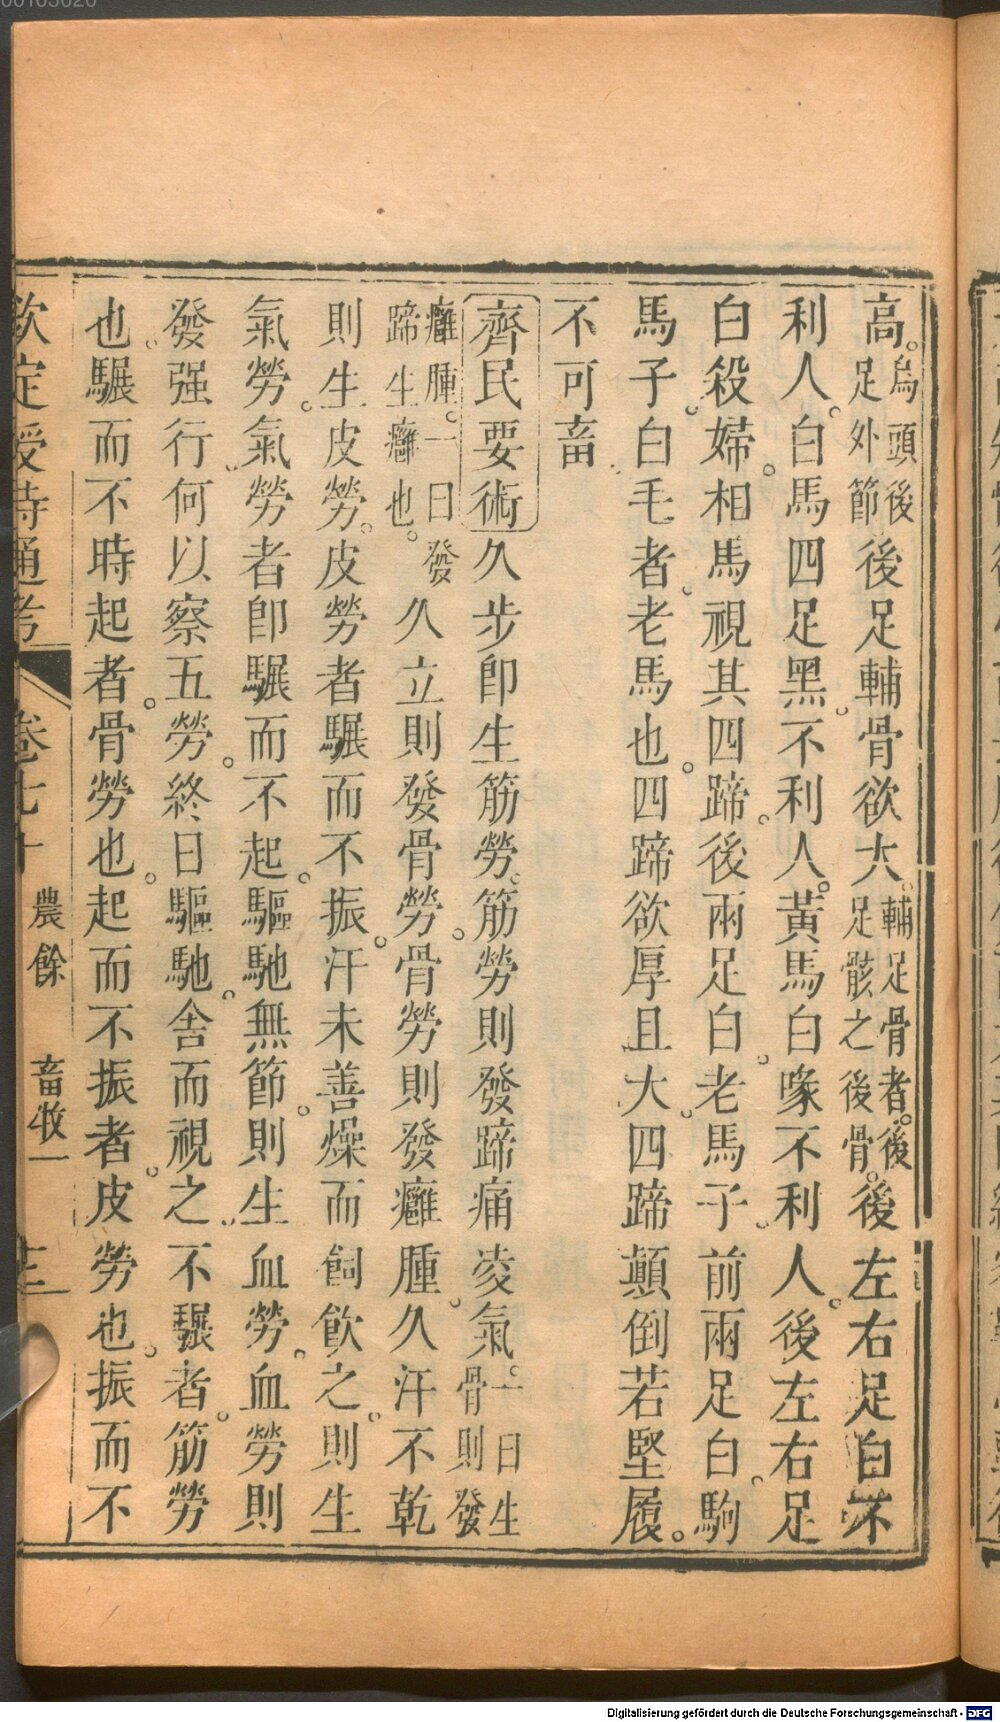 高。烏頭後足外節後足輔骨欲大。輔足骨者。後足骸之後骨。後左右足白不
利人。白馬四足黑。不利人。黃馬白喙不利人。後左右足
白殺婦。相馬視其四蹄。後兩足白。老馬子。前兩足白。駒
馬子。白毛者。老馬也。四蹄欲厚且大。四蹄顛倒若堅履。
不可畜。
齊民要術久步卽生筋勞。筋勞則發蹄痛凌氣。一曰生骨則發
癰腫。一曰發蹄生癰也。久立則發骨勞。骨勞則發癰腫。久汗不乾
則生皮勞。皮勞者驏而不振。汗未善燥而飼飮之。則生
氣勞。氣勞者卽驏而不起。驅馳無節。則生血勞。血勞則
發强行。何以察五勞。終日驅馳。舍而視之。不驏者。筋勞
也。驏而不時起者。骨勞也。起而不振者。皮勞也。振而不
欽定授時通考 卷七十 農餘 畜牧一 十三
Digitalisierung gefördert durch die Deutsche Forschungsgemeinschaft - DFG